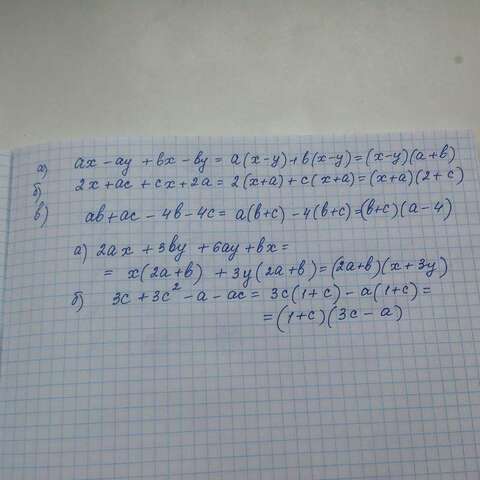 а) ax - ay + bx - by = a(x-y)+b(x-y)=(x-y)(a+b)
б) 2x + ac + cx + 2a = 2(x+a)+c(x+a)=(x+a)(2+c)
в) ab + ac - 4b - 4c = a(b+c) - 4(b+c)=(b+c)(a-4)
а) 2ax + 3by + 6ay + bx =
= x(2a+b) + 3y(2a+b)=(2a+b)(x+3y)
б) 3c + 3c² - a - ac = 3c(1+c) - a(1+c) =
= (1+c)(3c-a)